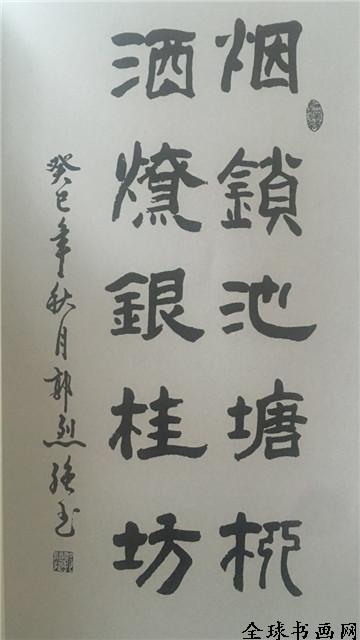 烟鎖池塘柳
酒燎銀桂坊
癸巳年秋月郭烈
全球书画网